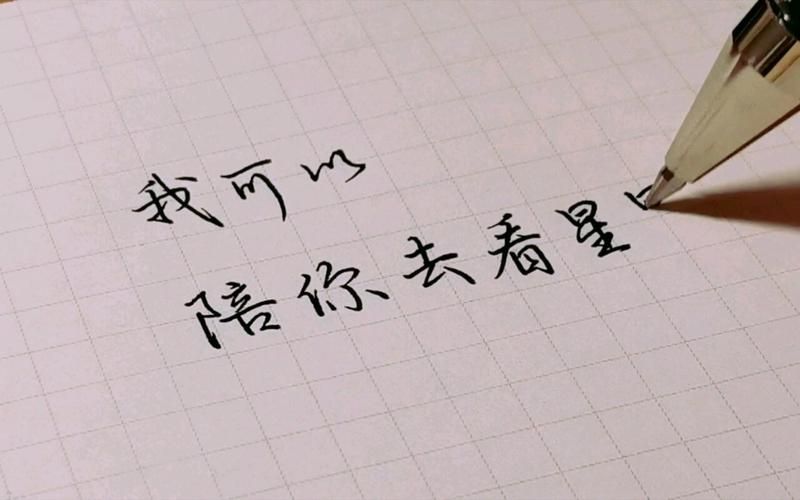 我可以
陪你去看星